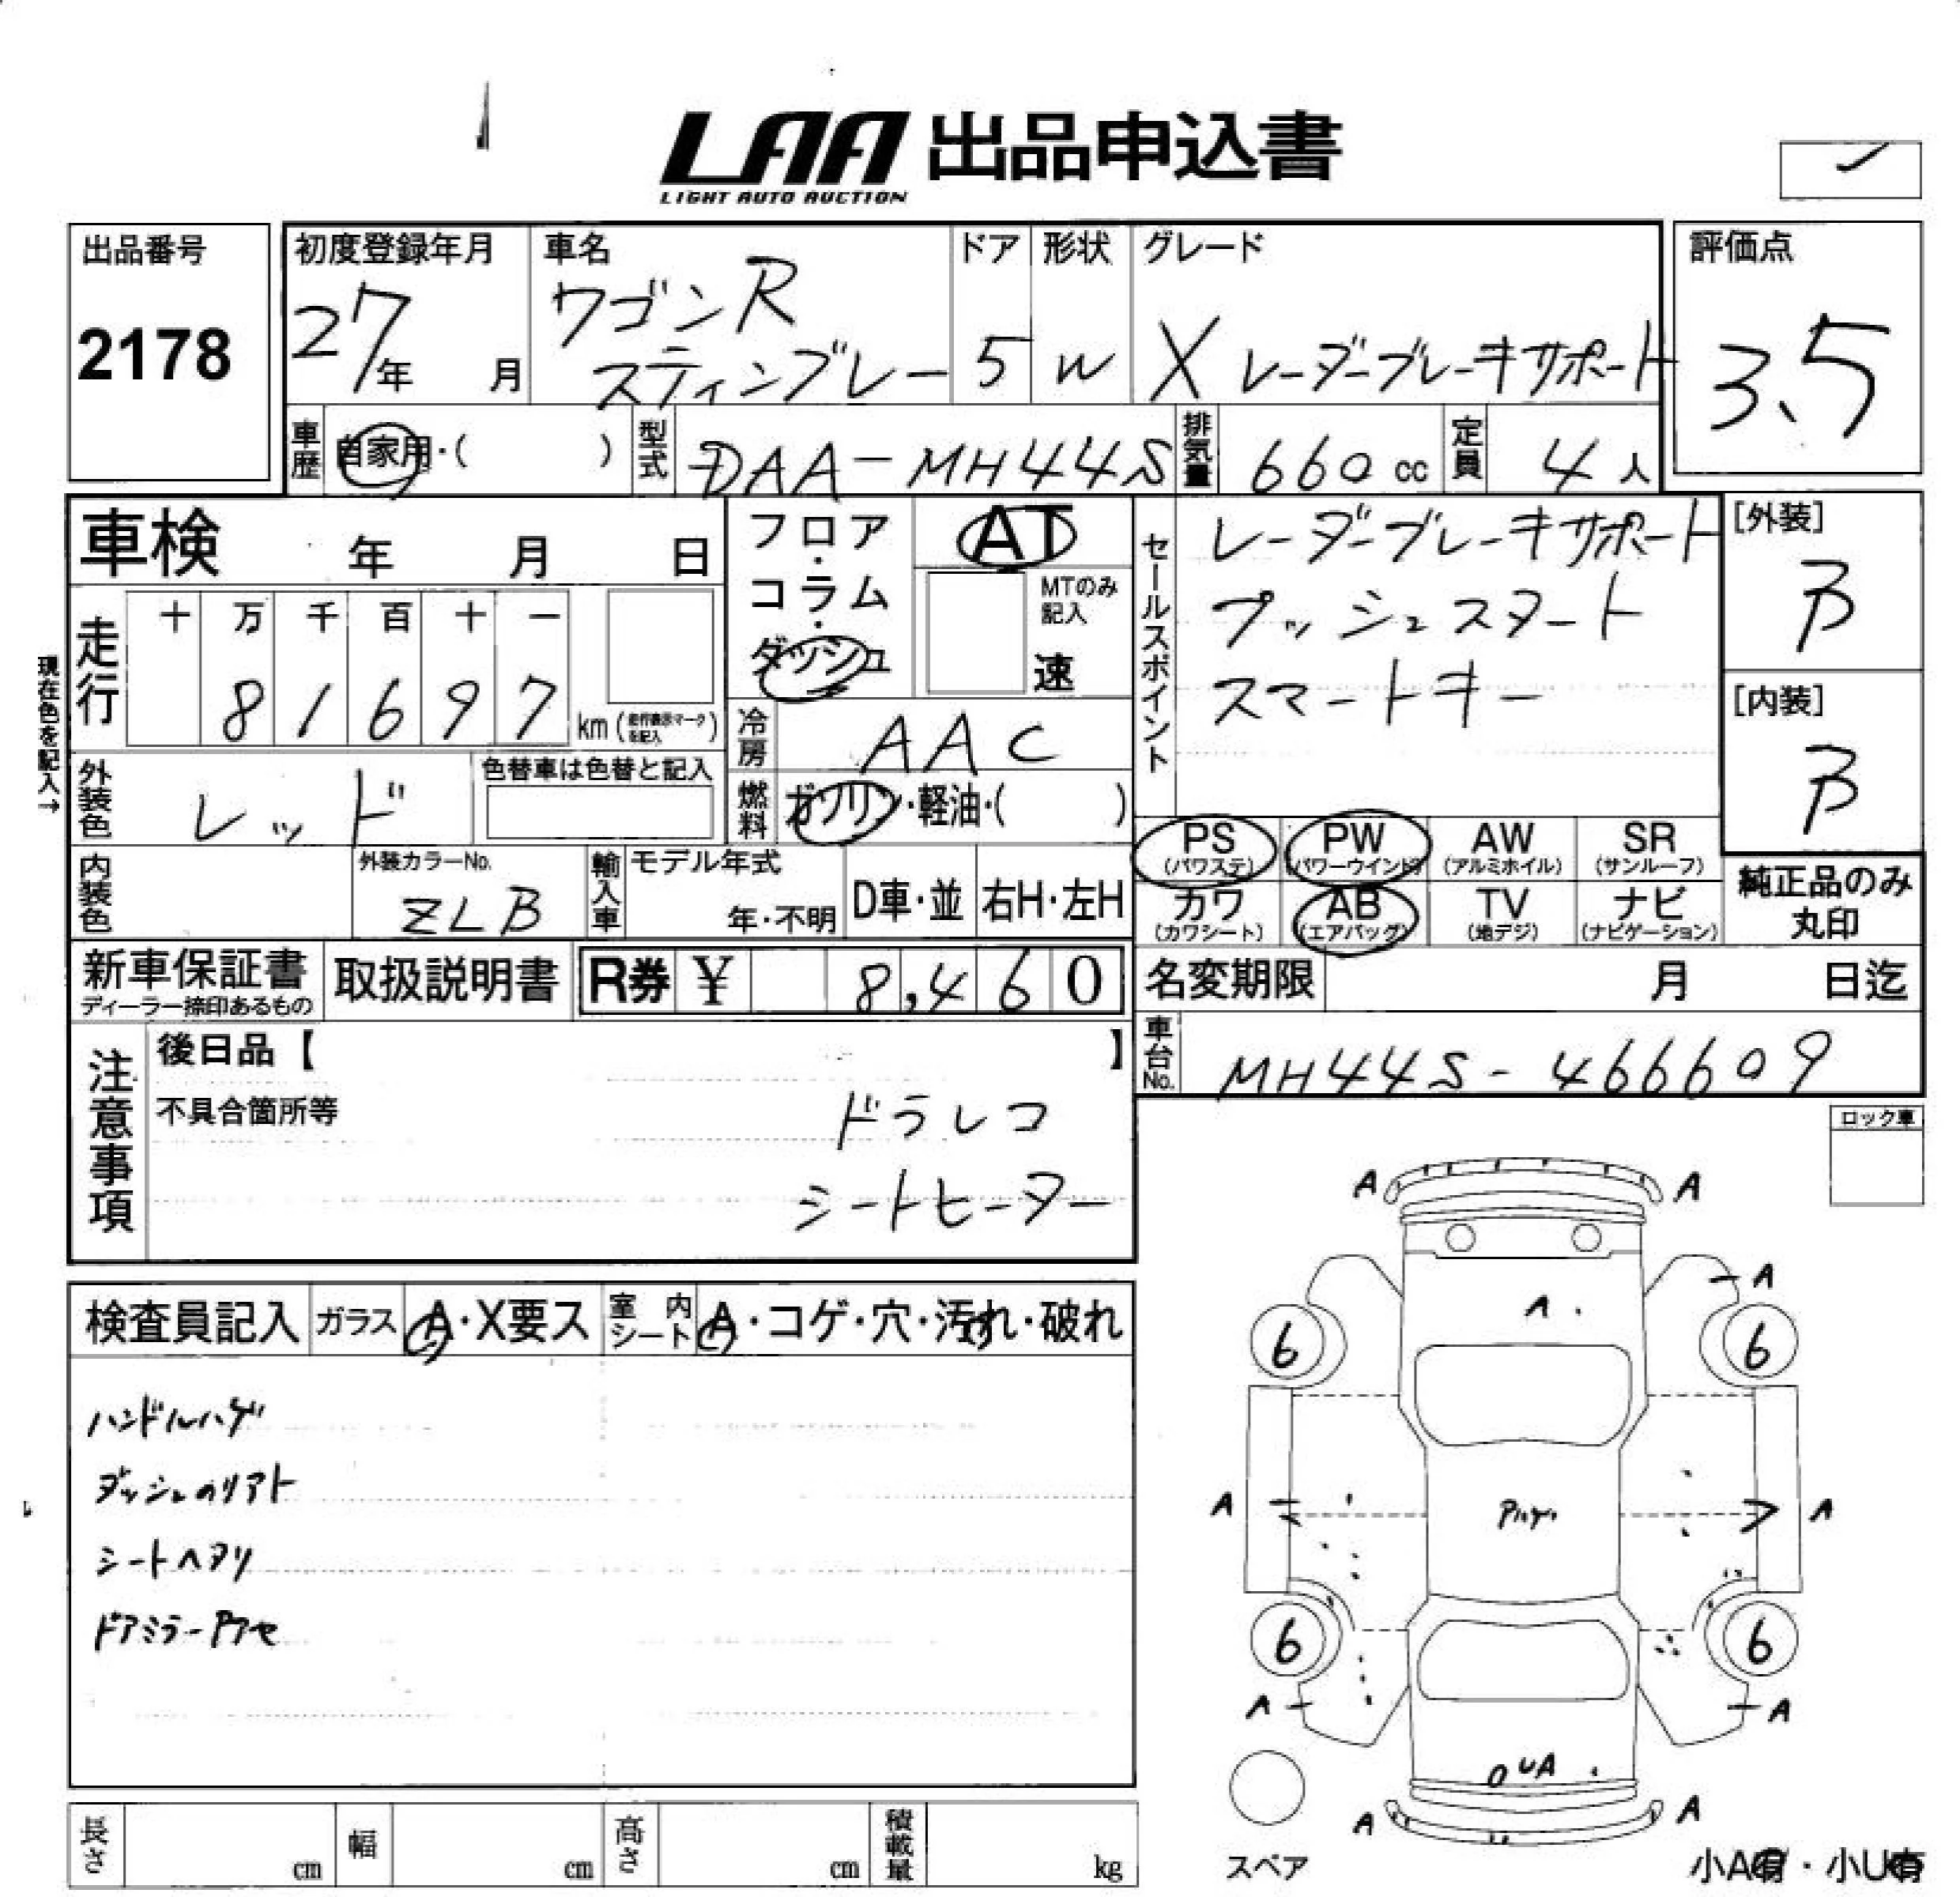 LAA 出品申込書
LIGHT AUTO AUCTION
出品番号
2178
初度登録年月
27年 月
車名
ワゴンR
スティングレー
ドア
5
形状
W
グレード
X レーダーブレーキサポート
評価点
3.5
車歴 自家用・( )
型式 DAA-MH44S
排気量 660 cc
定員 4 人
車検 年 月 日
フロア・コラム・ダッシュ
AT
MTのみ記入
速
セールスポイント
レーダーブレーキサポート
プッシュスタート
スマートキー
[外装]
B
[内装]
B
現在色を記入→
走行
十 万 千 百 十 一
8 1 6 9 7 km
冷房 AAC
外装色 レッド
色替車は色替と記入
燃料 ガソリン・軽油・( )
PS (パワステ)
PW (パワーウインド)
AW (アルミホイル)
SR (サンルーフ)
内装色
外装カラーNo.
ZLB
輸入車
モデル年式
年・不明
D車・並
右H・左H
カワ (カワシート)
AB (エアバッグ)
TV (地デジ)
ナビ (ナビゲーション)
純正品のみ
丸印
新車保証書
ディーラー捺印あるもの
取扱説明書
R券 ¥ 8,460
名変期限 月 日迄
車台No. MH44S-466609
注意事項
後日品【 】
不具合箇所等
ドラレコ
シートヒーター
ロック車
検査員記入
ガラス A・X要ス
室内シート A・コゲ・穴・汚れ・破れ
ハンドルハゲ
シートヘタリ
A A
A
A
6 6
A A
6 6
A A
UA
A A
スペア
小A有・小U有
長さ cm
幅 cm
高さ cm
積載量 kg